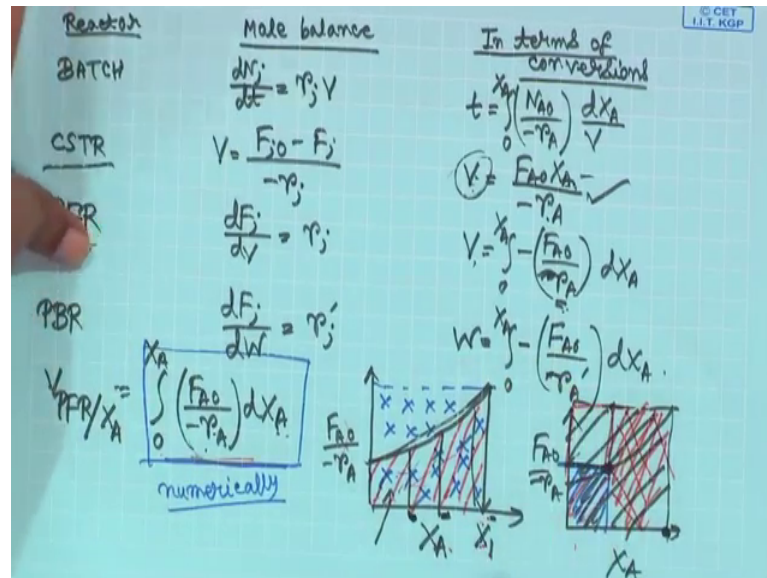 © CET
I.I.T. KGP
Reactor Mole balance In terms of conversions
BATCH dNj/dt = rj V t = ∫₀^XA (NA0/-rA) dXA/V
CSTR V = Fj0 - Fj/-rj V = FA0 XA/-rA
dFj/dV = rj V = ∫₀^XA -(FA0/-rA) dXA
PBR dFj/dW = rj' W = ∫₀^XA -(FA0/-rA') dXA.
VPFR/XA = ∫₀^XA (FA0/-rA) dXA
numerically
FA0/-rA
XA. X1
FA0/-rA
XA